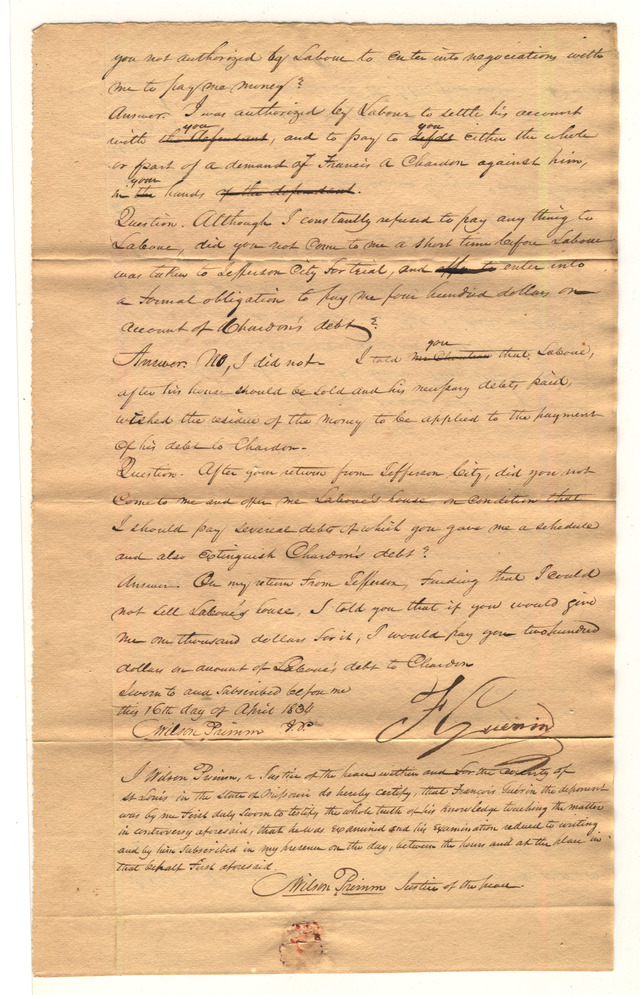 you not authorized by Laboue to enter into negociations with
me to pay me money?
Answer. I was authorized by Laboue to settle his account
you you
with the defendant, and to pay to deft either the whole
or part of a demand of Francis A Chardon against him,
your
in the hands of the defendant.
Question. Although I constantly refused to pay any thing to
Laboue, did you not come to me a short time before Laboue
was taken to Jefferson City for trial, and offer to enter into
a formal obligation to pay me four hundred dollars on
account of Chardon's debt?
you
Answer. No, I did not. I told Mr Chouteau that Laboue,
after his house should be sold and his necessary debts paid,
wished the residue of the money to be applied to the payment
of his debt to Chardon.
Question. After your return from Jefferson City, did you not
come to me and offer me Laboue's house on condition that
I should pay several debts of which you gave me a schedule
and also extinguish Chardon's debt?
Answer. On my return from Jefferson, finding that I could
not sell Laboue's house, I told you that if you would give
me one thousand dollars for it, I would pay you two hundred
dollars on account of Laboue's debt to Chardon
Sworn to and subscribed before me
this 16th day of April 1834
Wilson Primm J.P.
F Guerin
I Wilson Primm, a Justice of the peace within and for the County of
St Louis in the State of Missouri do hereby certify, that Francois Guerin the deponent
was by me first duly sworn to testify the whole truth of his knowledge touching the matter
in controversy aforesaid; that he was examined and his examination reduced to writing
and by him subscribed in my presence on the day, between the hours and at the place in
that behalf first aforesaid.
Wilson Primm Justice of the peace.